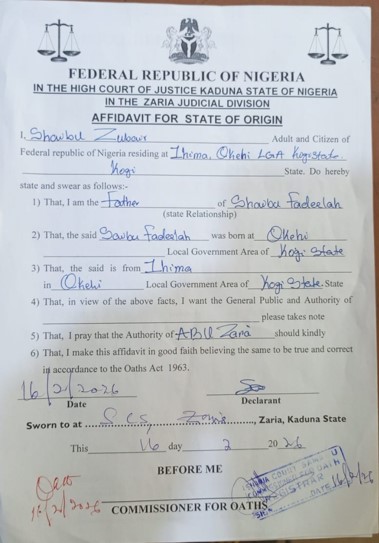 FEDERAL REPUBLIC OF NIGERIA
IN THE HIGH COURT OF JUSTICE KADUNA STATE OF NIGERIA
IN THE ZARIA JUDICIAL DIVISION
AFFIDAVIT FOR STATE OF ORIGIN
I, Shaibu Zubair Adult and Citizen of
Federal republic of Nigeria residing at Ihima, Okehi LGA Kogi State.
Kogi State. Do hereby
state and swear as follows:-
1) That, I am the Father of Shaibu Fadeelah
(state Relationship)
2) That, the said Saibu Fadeelah was born at Okehi
Local Government Area of Kogi State
3) That, the said is from Ihima
in Okehi Local Government Area of Kogi State. State
4) That, in view of the above facts, I want the General Public and Authority of
please takes note
5) That, I pray that the Authority of ABU Zaria should kindly
6) That, I make this affidavit in good faith believing the same to be true and correct
in accordance to the Oaths Act 1963.
16/2/2026
Date Declarant
Sworn to at SCS Zaria, Zaria, Kaduna State
This 16 day 2 2026
BEFORE ME
Oath
16/2/2026
COMMISSIONER FOR OATHS
COURT
FOR OATH
DATE 16/2/26